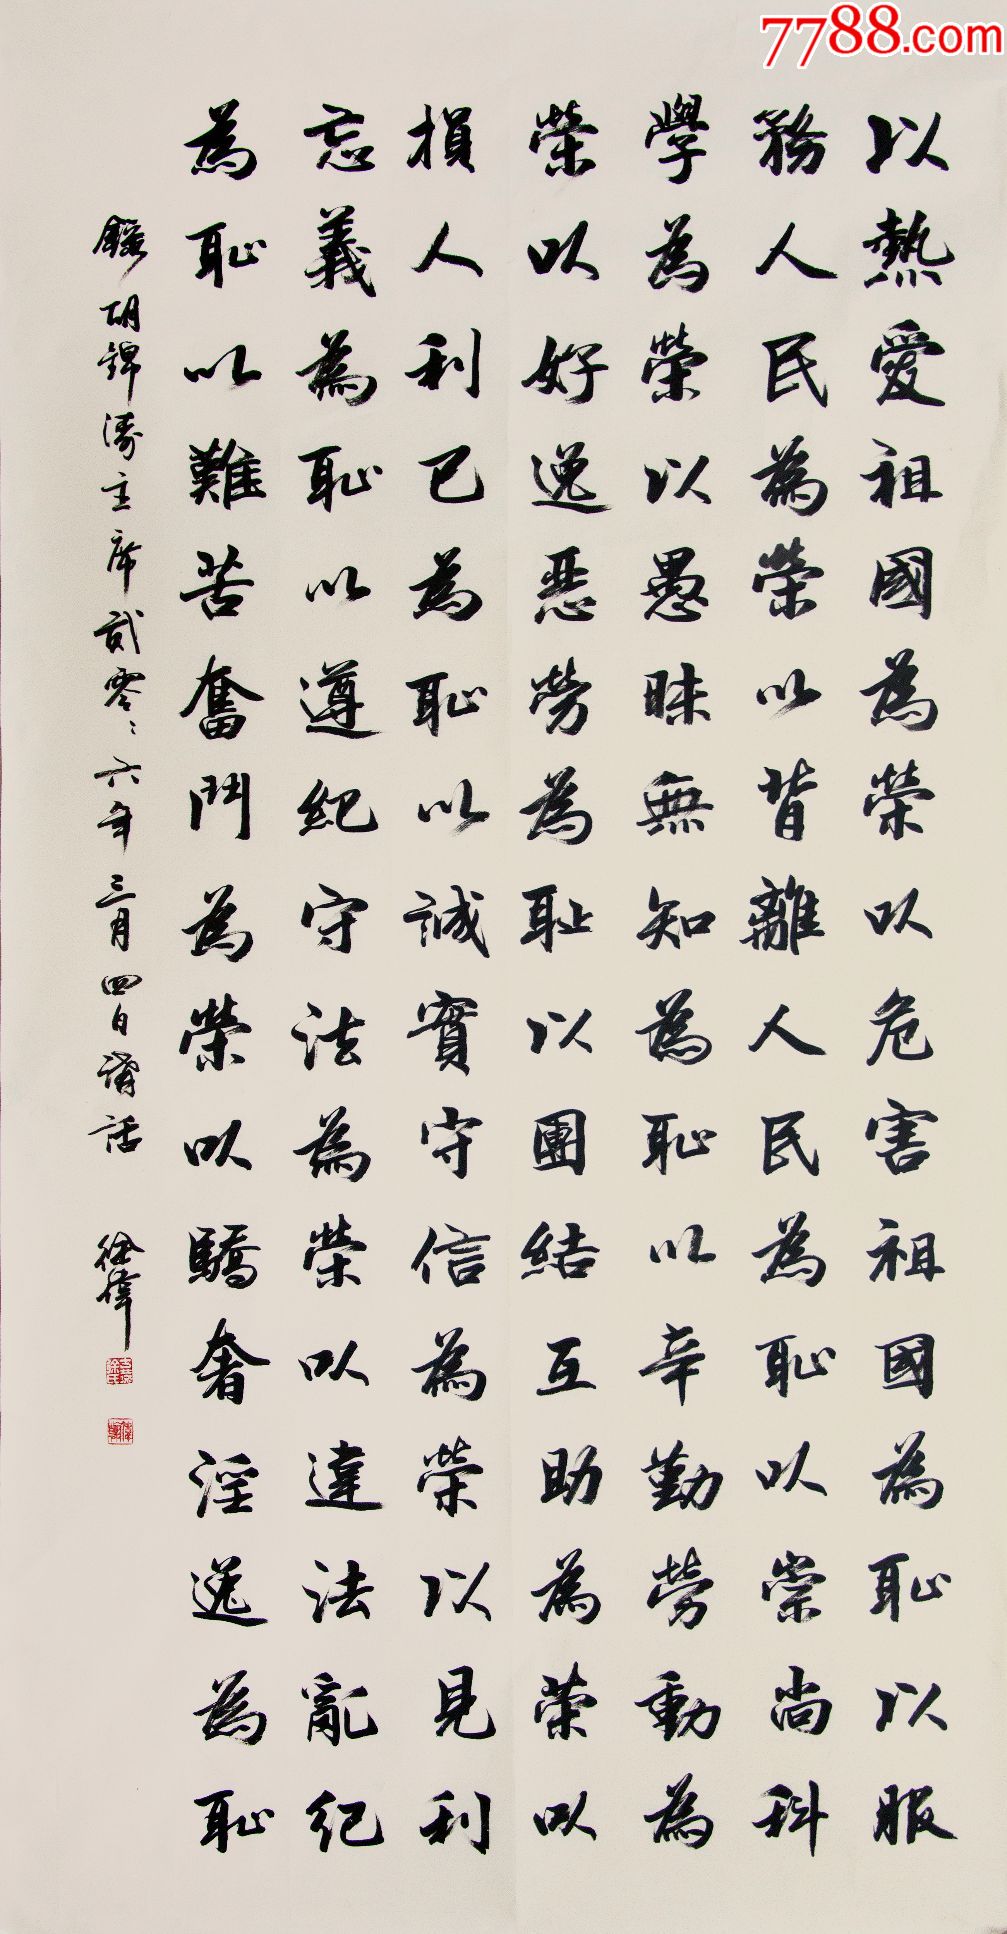 7788.com
以熱愛祖國為榮以危害祖國為恥以服
務人民為榮以背離人民為恥以崇尚科
學為榮以愚昧無知為恥以辛勤勞動為
榮以好逸惡勞為耻以團結互助為榮以
損人利己為恥以誠實守信為榮以見利
忘義為恥以遵紀守法為榮以違法亂紀
為恥以難苦奮鬥為榮以驕奢淫逸為恥
錄胡錦濤主席貳零零六年三月四日講話